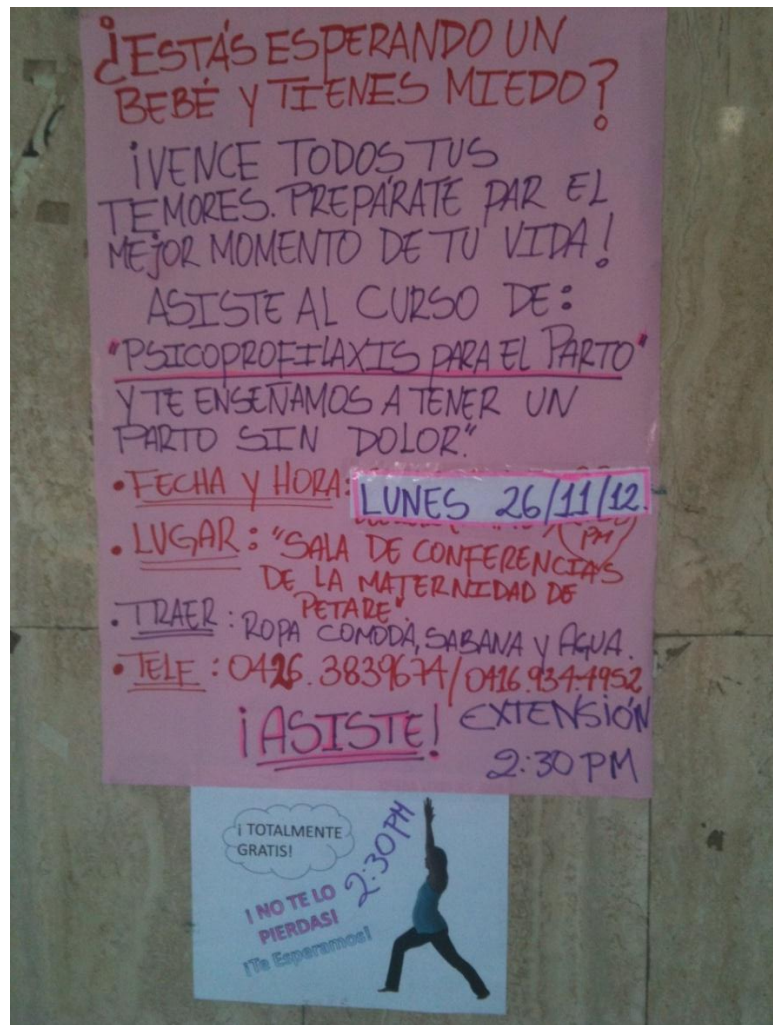 ¿ESTÁS ESPERANDO UN
BEBÉ Y TIENES MIEDO?
¡VENCE TODOS TUS
TEMORES. PREPÁRATE PAR EL
MEJOR MOMENTO DE TU VIDA!
ASISTE AL CURSO DE:
"PSICOPROFILAXIS PARA EL PARTO"
Y TE ENSEÑAMOS A TENER UN
PARTO SIN DOLOR."
• FECHA Y HORA: LUNES 26/11/12.
PM
• LUGAR: "SALA DE CONFERENCIAS
DE LA MATERNIDAD DE
PETARE"
• TRAER: ROPA COMODA, SABANA Y AGUA.
• TELE: 0426.3839674/0416.934-4952
¡ASISTE! EXTENSIÓN
2:30 PM
¡ TOTALMENTE
GRATIS!
2:30 PM
¡ NO TE LO
PIERDAS!
¡Te Esperamos!